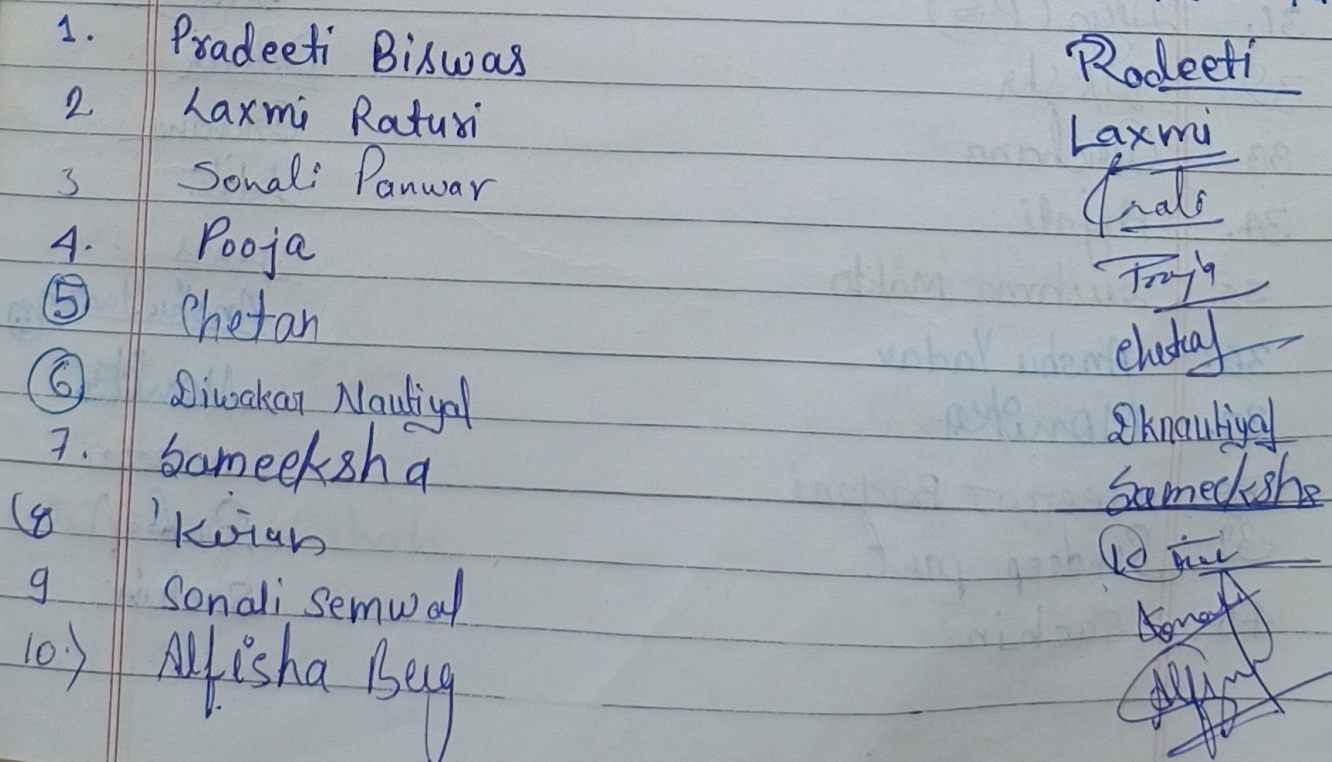 1. Pradeeti Biswas Pradeeti
2 Laxmi Raturi Laxmi
3 Sonali Panwar
4. Pooja
5 Chetan
6 Diwakar Nautiyal Dknautiyal
7. Sameeksha Sameeksha
(8 Kiran
9 Sonali Semwal
10.) Alfisha Beig